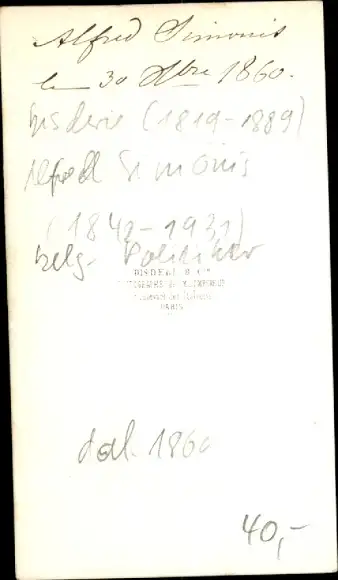 Alfred Simonis
le 30 Xbre 1860.
Disderi (1819-1889)
Alfred Simonis
(1842-1931)
belg. Politiker
DISDERI & Cie
PHOTOGRAPHES DE S.M. L'EMPEREUR
Boulevard des Italiens
PARIS
dat. 1860
40,-